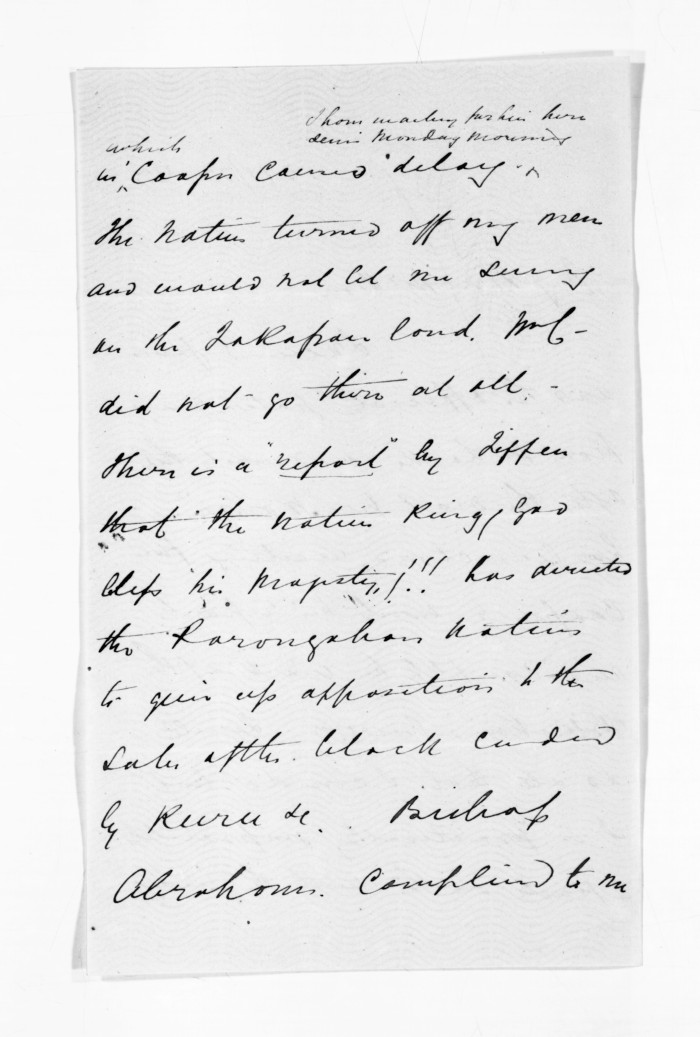 I have waiting for him here
since Monday morning
which
in Cooper caused delay.
The Natives turned off my men
and would not let me survey
on the Takapau land. McC-
did not go there at all. -
There is a "report" by Tiffen
that the native King, (God
bless his Majesty)!!! has directed
the Rarongahau Natives
to give up opposition to the
Sale of the block ceded
by Rewu &c. Bishop
Abraham. Complained to me